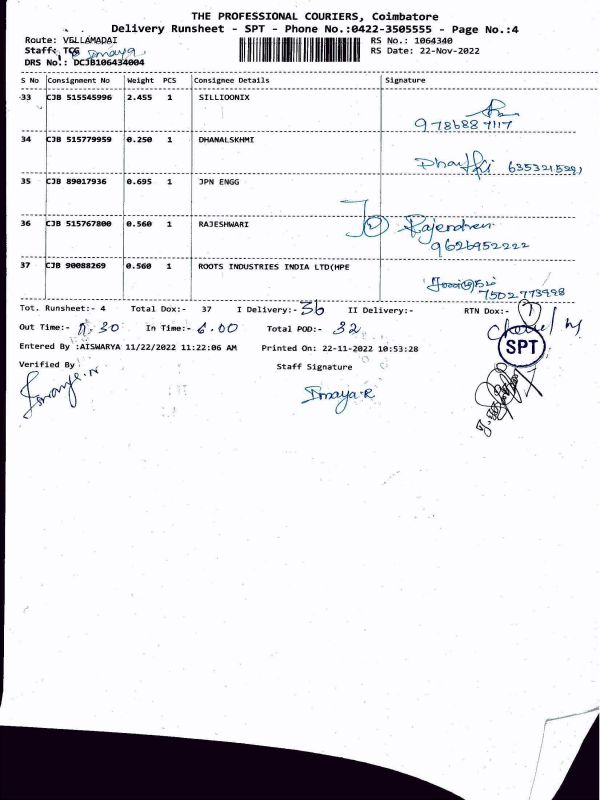 THE PROFESSIONAL COURIERS, Coimbatore
Delivery Runsheet - SPT - Phone No.:0422-3505555 - Page No.:4
Route: VELLAMADAI RS No.: 1064340
Staff: TCG RS Date: 22-Nov-2022
DRS No.: DCJB106434004
S No Consignment No Weight PCS Consignee Details Signature
33 CJB 515545996 2.455 1 SILLIOONIX
9786887117
34 CJB 515779959 0.250 1 DHANALSKHMI
35 CJB 89017936 0.695 1 JPN ENGG
36 CJB 515767800 0.560 1 RAJESHWARI Rajendren
9626952222
37 CJB 90088269 0.560 1 ROOTS INDUSTRIES INDIA LTD(HPE
7502773998
Tot. Runsheet:- 4 Total Dox:- 37 I Delivery:- 36 II Delivery:- RTN Dox:-
Out Time:- 11.30 In Time:- 6.00 Total POD:- 32
SPT
Entered By :AISWARYA 11/22/2022 11:22:06 AM Printed On: 22-11-2022 10:53:28
Verified By Staff Signature
Imaya.R